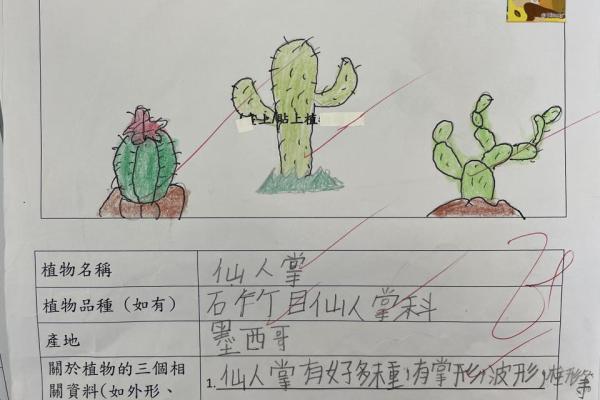 上/貼上植
植物名稱
仙人掌
植物品種（如有）
石竹目仙人掌科
產地
墨西哥
關於植物的三個相
關資料(如外形、
1. 仙人掌有好多種，有掌形，波形，柱形等